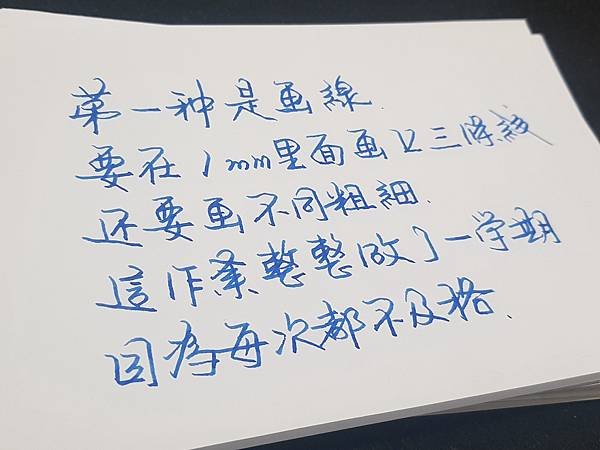 第一种是画線.
要在1mm里面画以三條線
还要画不同粗細.
這作業整整做了一学期
因為每次都不及格.